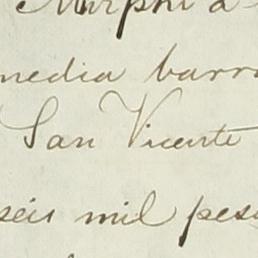 Murphi a
media barra
San Vicente
seis mil pesos